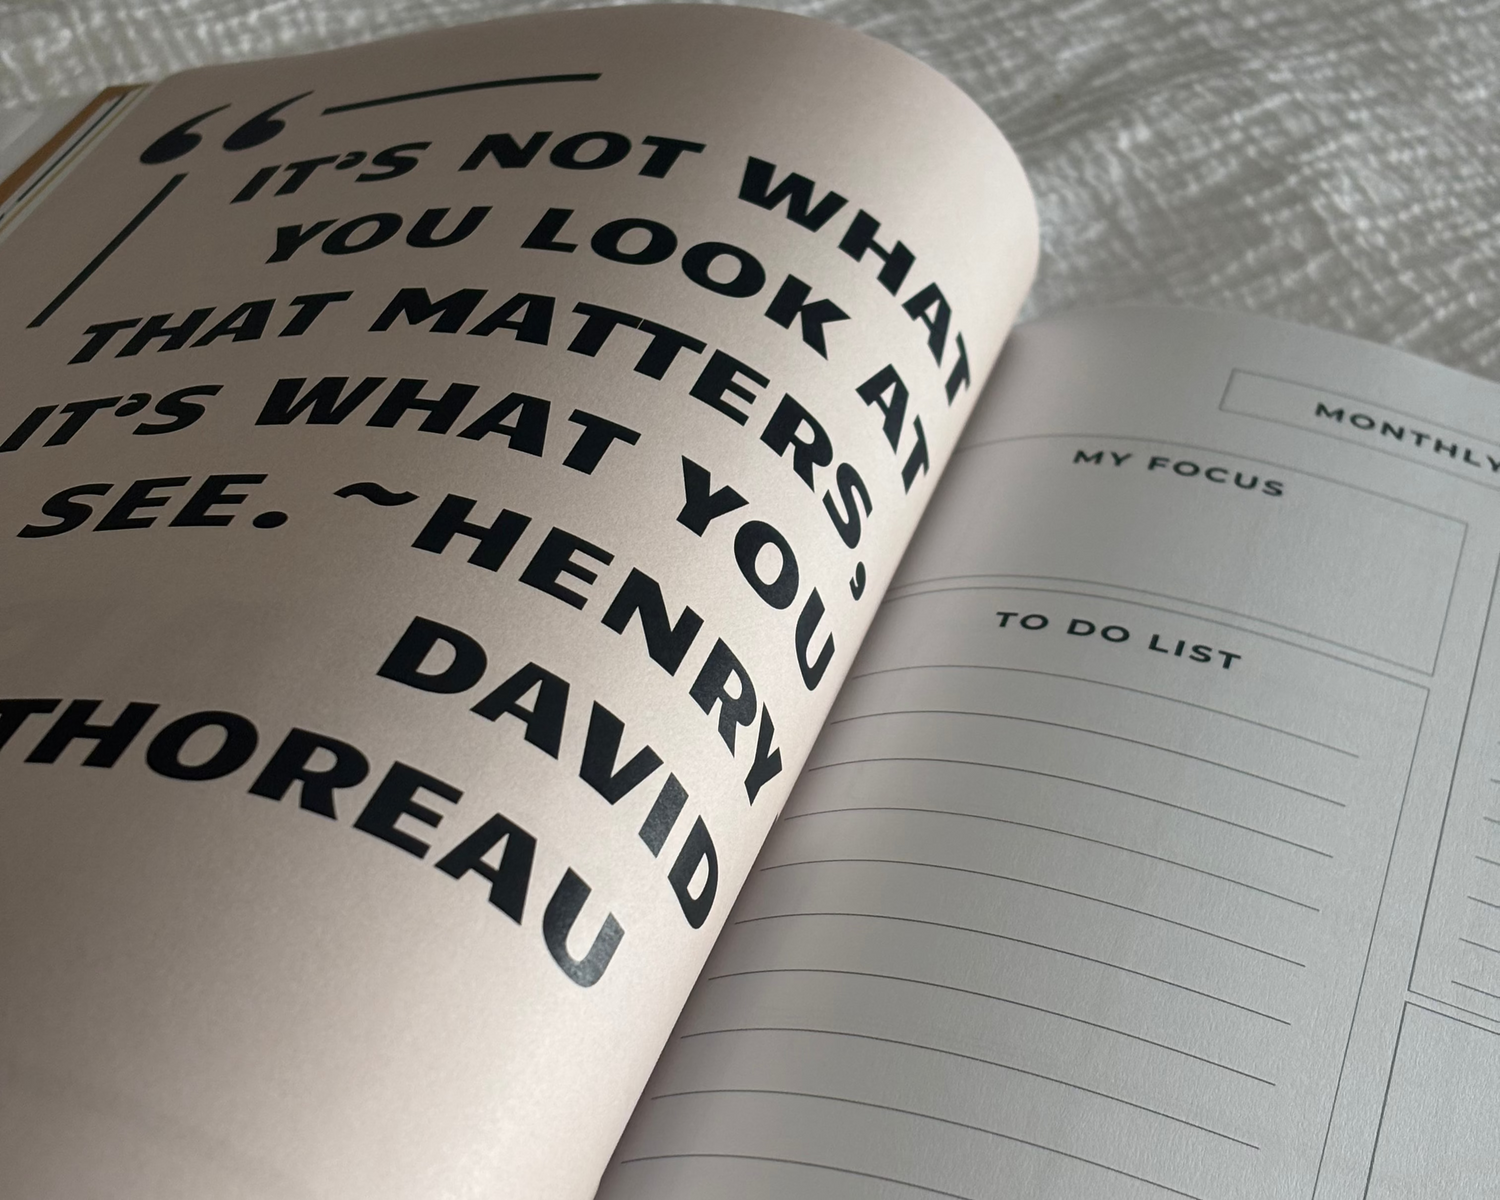 “
IT’S NOT WHAT
YOU LOOK AT
THAT MATTERS,
IT’S WHAT YOU
SEE. ~HENRY
DAVID
THOREAU
MONTHLY
MY FOCUS
TO DO LIST